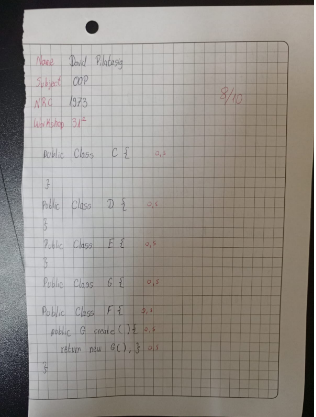 Name David Pilatasig
Subject OOP
NRC 1973
8/10
Workshop 31
public Class C { 0,5
}
Public Class D { 0,5
}
Public Class E {
}
Public Class G {
Public Class F {
public G create () {
return new G(); }
}